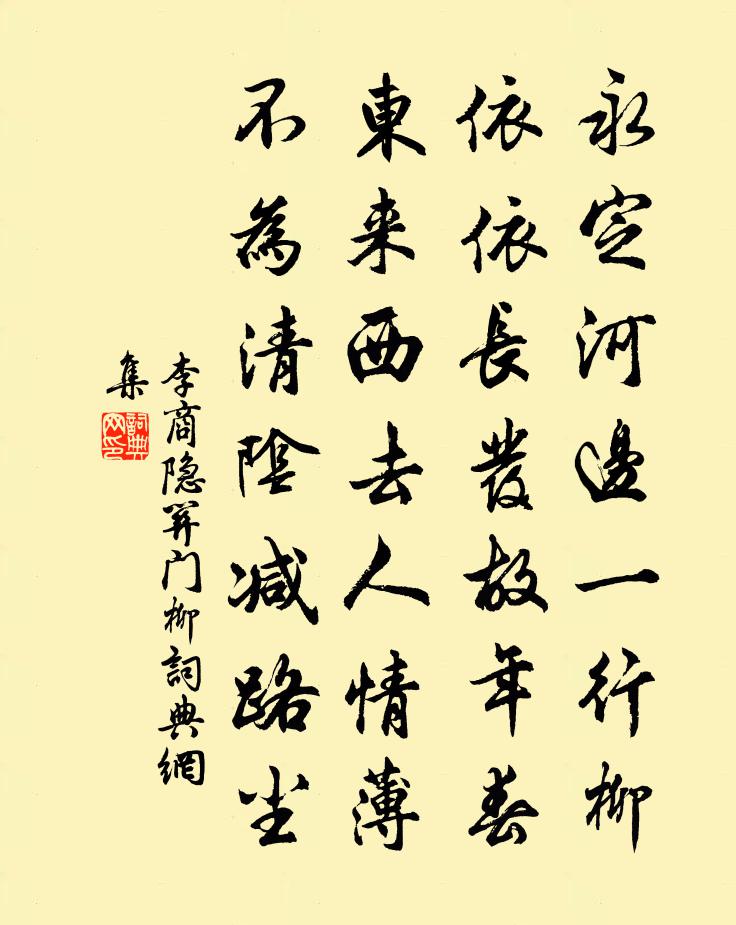 永定河邊一行柳
依依長發故年春
東来西去人情薄
不為清陰减路尘
李商隐関门柳詞典網
集
詞典网印